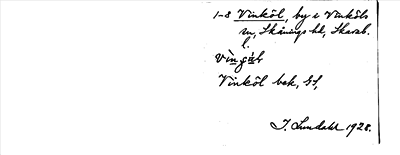 1-8 Vinköl, by i Vinköls
sn, Skånings hd, Skarab.
l.
Vinköl bek, Gs,
I. Lundahl 1928.